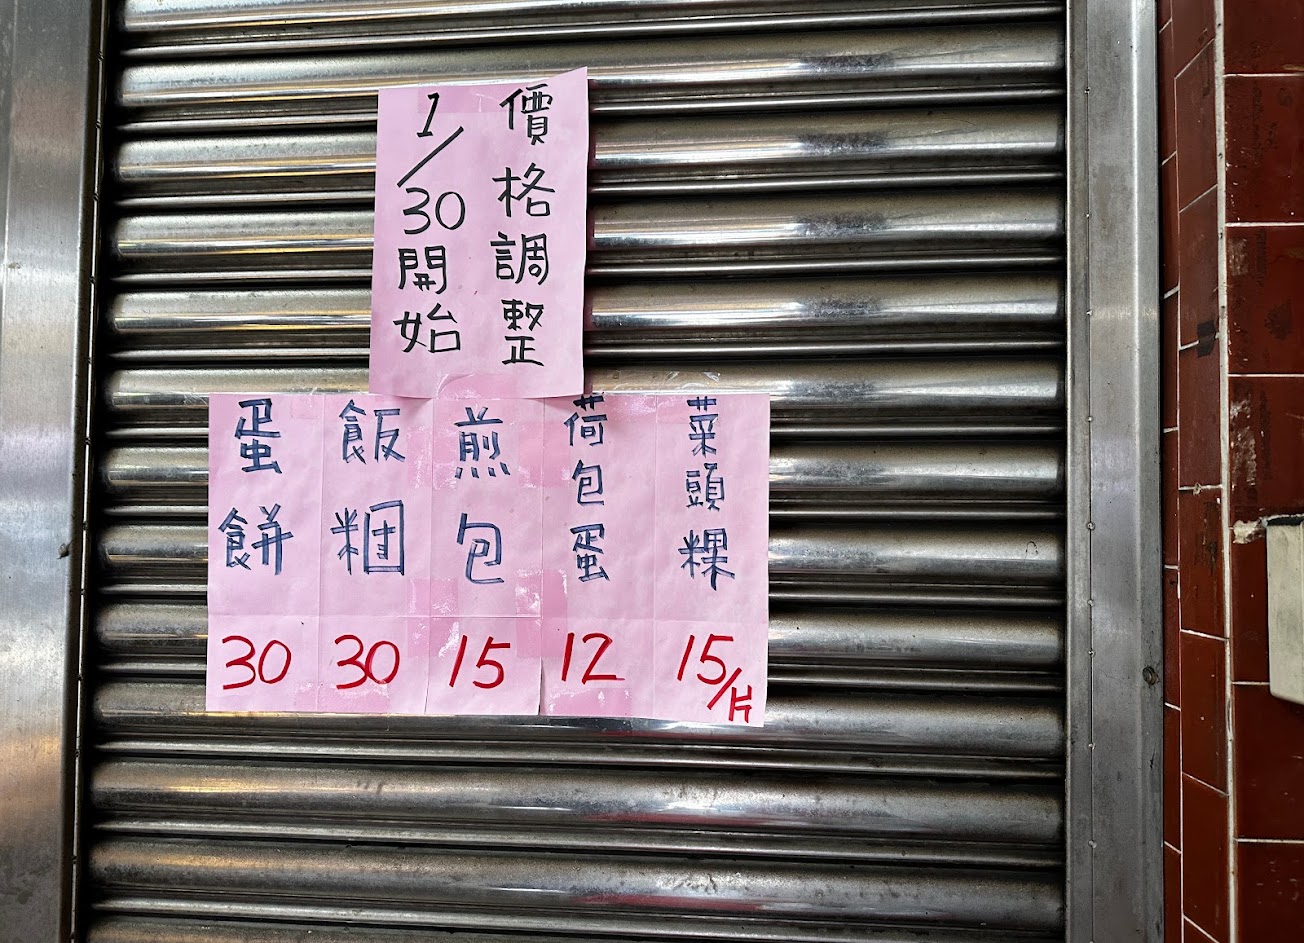 價格調整
1/30開始
菜頭粿 15/片
荷包蛋 12
煎包 15
飯糰 30
蛋餅 30